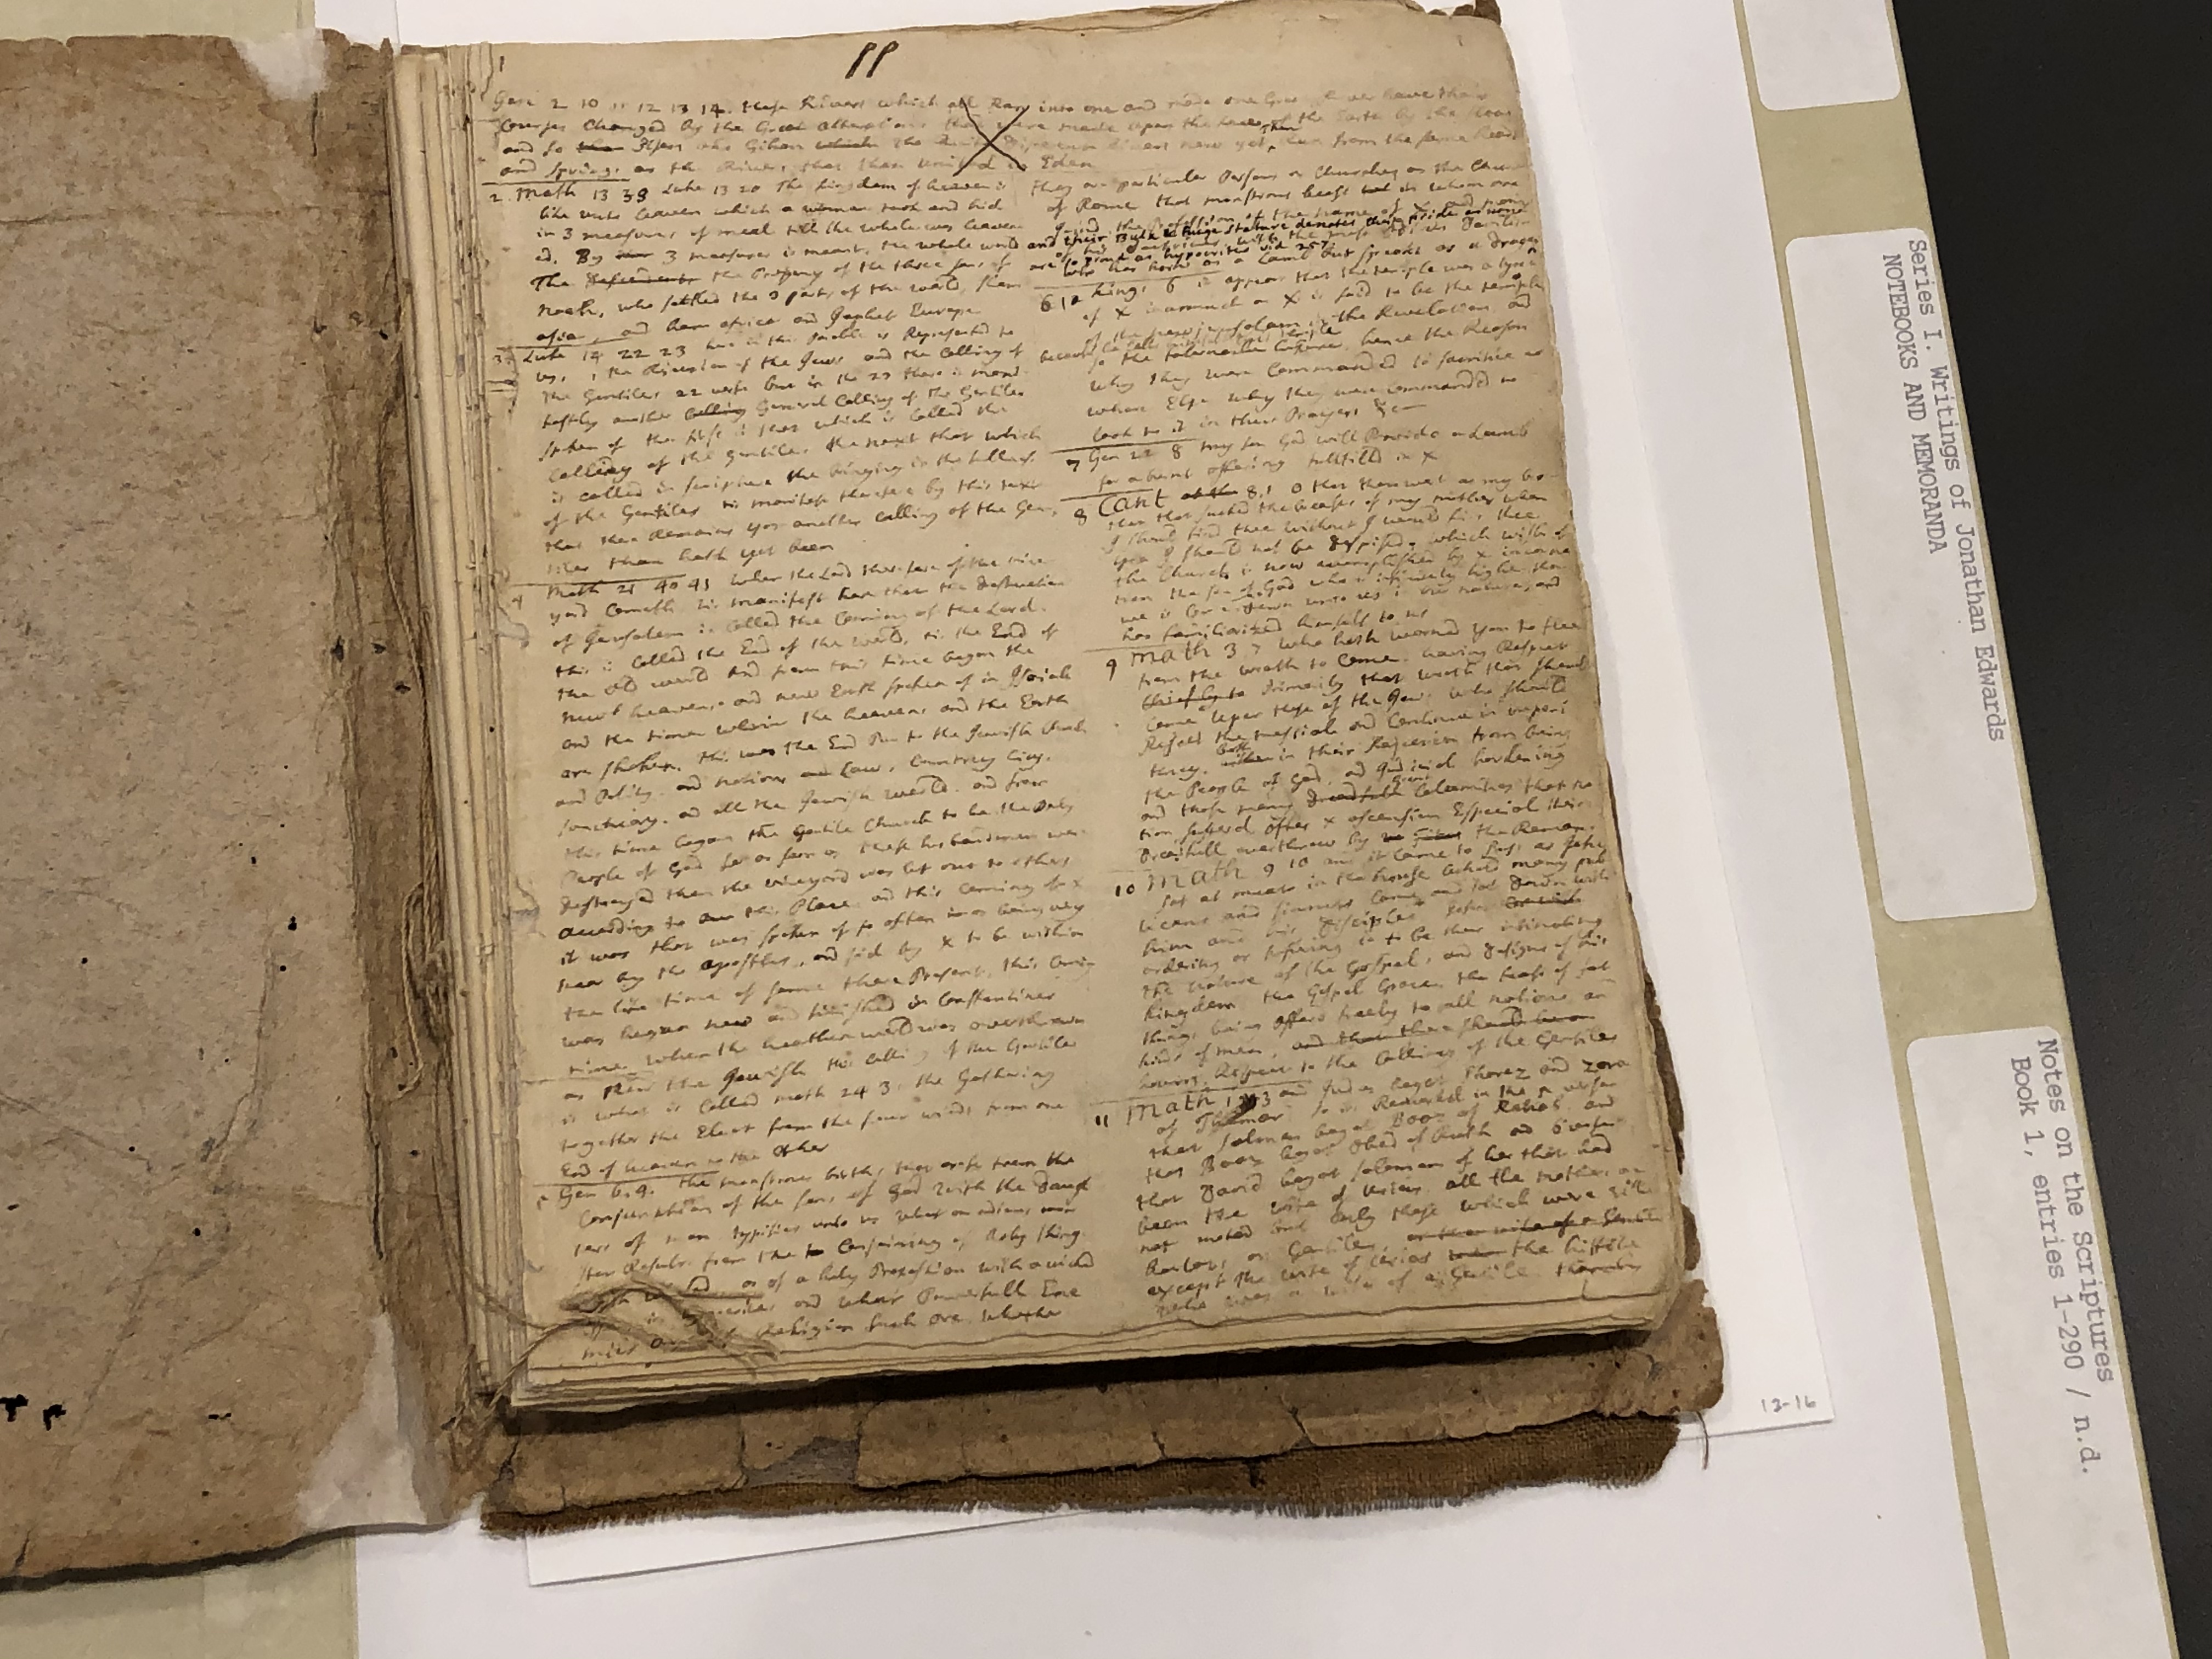 pp
1
Gen 2 10 11 12 13 14. these Rivers which all Ran into one and made one Great River have their
Courses Changed by the Great alterations that were made upon the face of the Earth by the flood
and so Pison and Gihon from the same Head
and Springs as the Rivers that then united in Eden
2. Math 13 33 Luke 13 20 The kingdom of heaven is
like unto leaven which a woman took and hid
in 3 measures of meal till the whole was leaven
ed. By 3 measures is meant, the whole world
The the Progeny of the three sons of
Noah, who settled the 3 parts of the world, Shem
asia, and Ham africa and Japhet Europe
3. Luke 14 22 23 here in this Parable is Represented to
us, the Rejection of the Jews and the Calling of
the Gentiles 22 verse but in the 23 there is mani
festly another Calling General Calling of the Gentiles
spoken of the first is that which is called the
Calling of the Gentiles the next that which
is called in scripture the bringing in the fullness
of the Gentiles tis manifest therefore by this text
that there Remains yet another Calling of the Gen
tiles than hath yet been
4 Math 21 40 41 when the Lord therefore of the vine
yard Cometh tis manifest here that the Destruction
of Jerusalem is Called the Coming of the Lord.
this is Called the End of the world, tis the End of
the old world and from this time began the
new heavens and new Earth spoken of in Isaiah
and the time wherein the heavens and the Earth
are shaken. this was the End Put to the Jewish Church
and Polity. and nation and Law, Country City,
sanctuary. and all the Jewish world. and from
this time began the Gentile Church to be the only
People of God for as soon as these husbandmen were
destroyed then the vineyard was let out to others
according to this Place and this Coming of X
it was that was spoken of so often as being very
near by the apostles, and said by X to be within
the life time of some there Present, this Coming
was begun now and finished in Constantines
time when the heathen world was overthrown
as Now the Jewish this calling of the Gentiles
is what is Called math 24 31 the Gathering
together the Elect from the four winds from one
End of heaven to the other
5 Gen 6. 4. the monstrous births that arose from the
Conjunction of the sons of God with the Daugh
ters of men typifies unto us what an odious mon
ster Results from the Conjoining of holy things
as of a holy Profession with a wicked
and what Powerfull Ene
mies Religion such are. whether
they are particular Persons or Churches as the Church
of Rome that monstrous beast in whom are
joind the Profession of the name of X and
and their Bulk & huge stature denotes their pride as none
are so proud as hypocrites vid 257.
who has horns as a Lamb but speaks as a dragon
6 1 Kings 6 it appears that the temple was a type
of X inasmuch as X is said to be the temple
of the new jerusalem in the Revelation and
so the tabernacle hence the Reason
why they were Commanded to sacrifice no
where Else why they were commanded to
look to it in their Prayers &c
7 Gen 22 8 my son God will Provide a Lamb
for a burnt offering fulfilld in X
8 Cant 8, 1 O that thou wert as my bro
ther that sucked the breasts of my mother when
I should find thee without I would kiss thee
yea I should not be despised. which wish of
the Church is now accomplished by X incarna
tion the son of God who is infinitely higher than
we is Come Down unto us in our nature, and
has familiarized himself to us
9 Math 3 7 who hath warned you to flee
from the wrath to Come. having Respect
chiefly to Primarily that wrath that should
Come upon those of the Jews who should
Reject the messiah and Continue in impeni
tency. both in their Rejection from being
the People of God, and Judicial hardening
and those many dreadfull Great Calamities that na
tion suffered after X ascension Especial their
Dreadfull overthrow by the Romans
10 Math 9 10 and it Came to Pass as Jesus
sat at meat in the house behold many pub
licans and sinners came and sat down with
him and his disciples
ordering or suffering it to be thus intimating
the nature of the Gospel, and designs of his
Kingdom the Gospel Grace, the feast of fat
things being offerd freely to all nations and
kinds of men,
having Respect to the Calling of the Gentiles
11 Math 1 3 and Judas begat Pharez and Zara
of Thamar so is Remarked in the 5 verse
that Salmon begat Booz of Rahab and
that Booz begat Obed of Ruth and 6 verse
that David begat Solomon of her that had
been the wife of Urias, all the mothers are
not noted but only those which were Either
Harlots or Gentiles,
except the wife of Urias the hittite
who was a wife of a Gentile
Series I. Writings of Jonathan Edwards
NOTEBOOKS AND MEMORANDA
Notes on the Scriptures
Book 1, entries 1-290 / n.d.
12-16